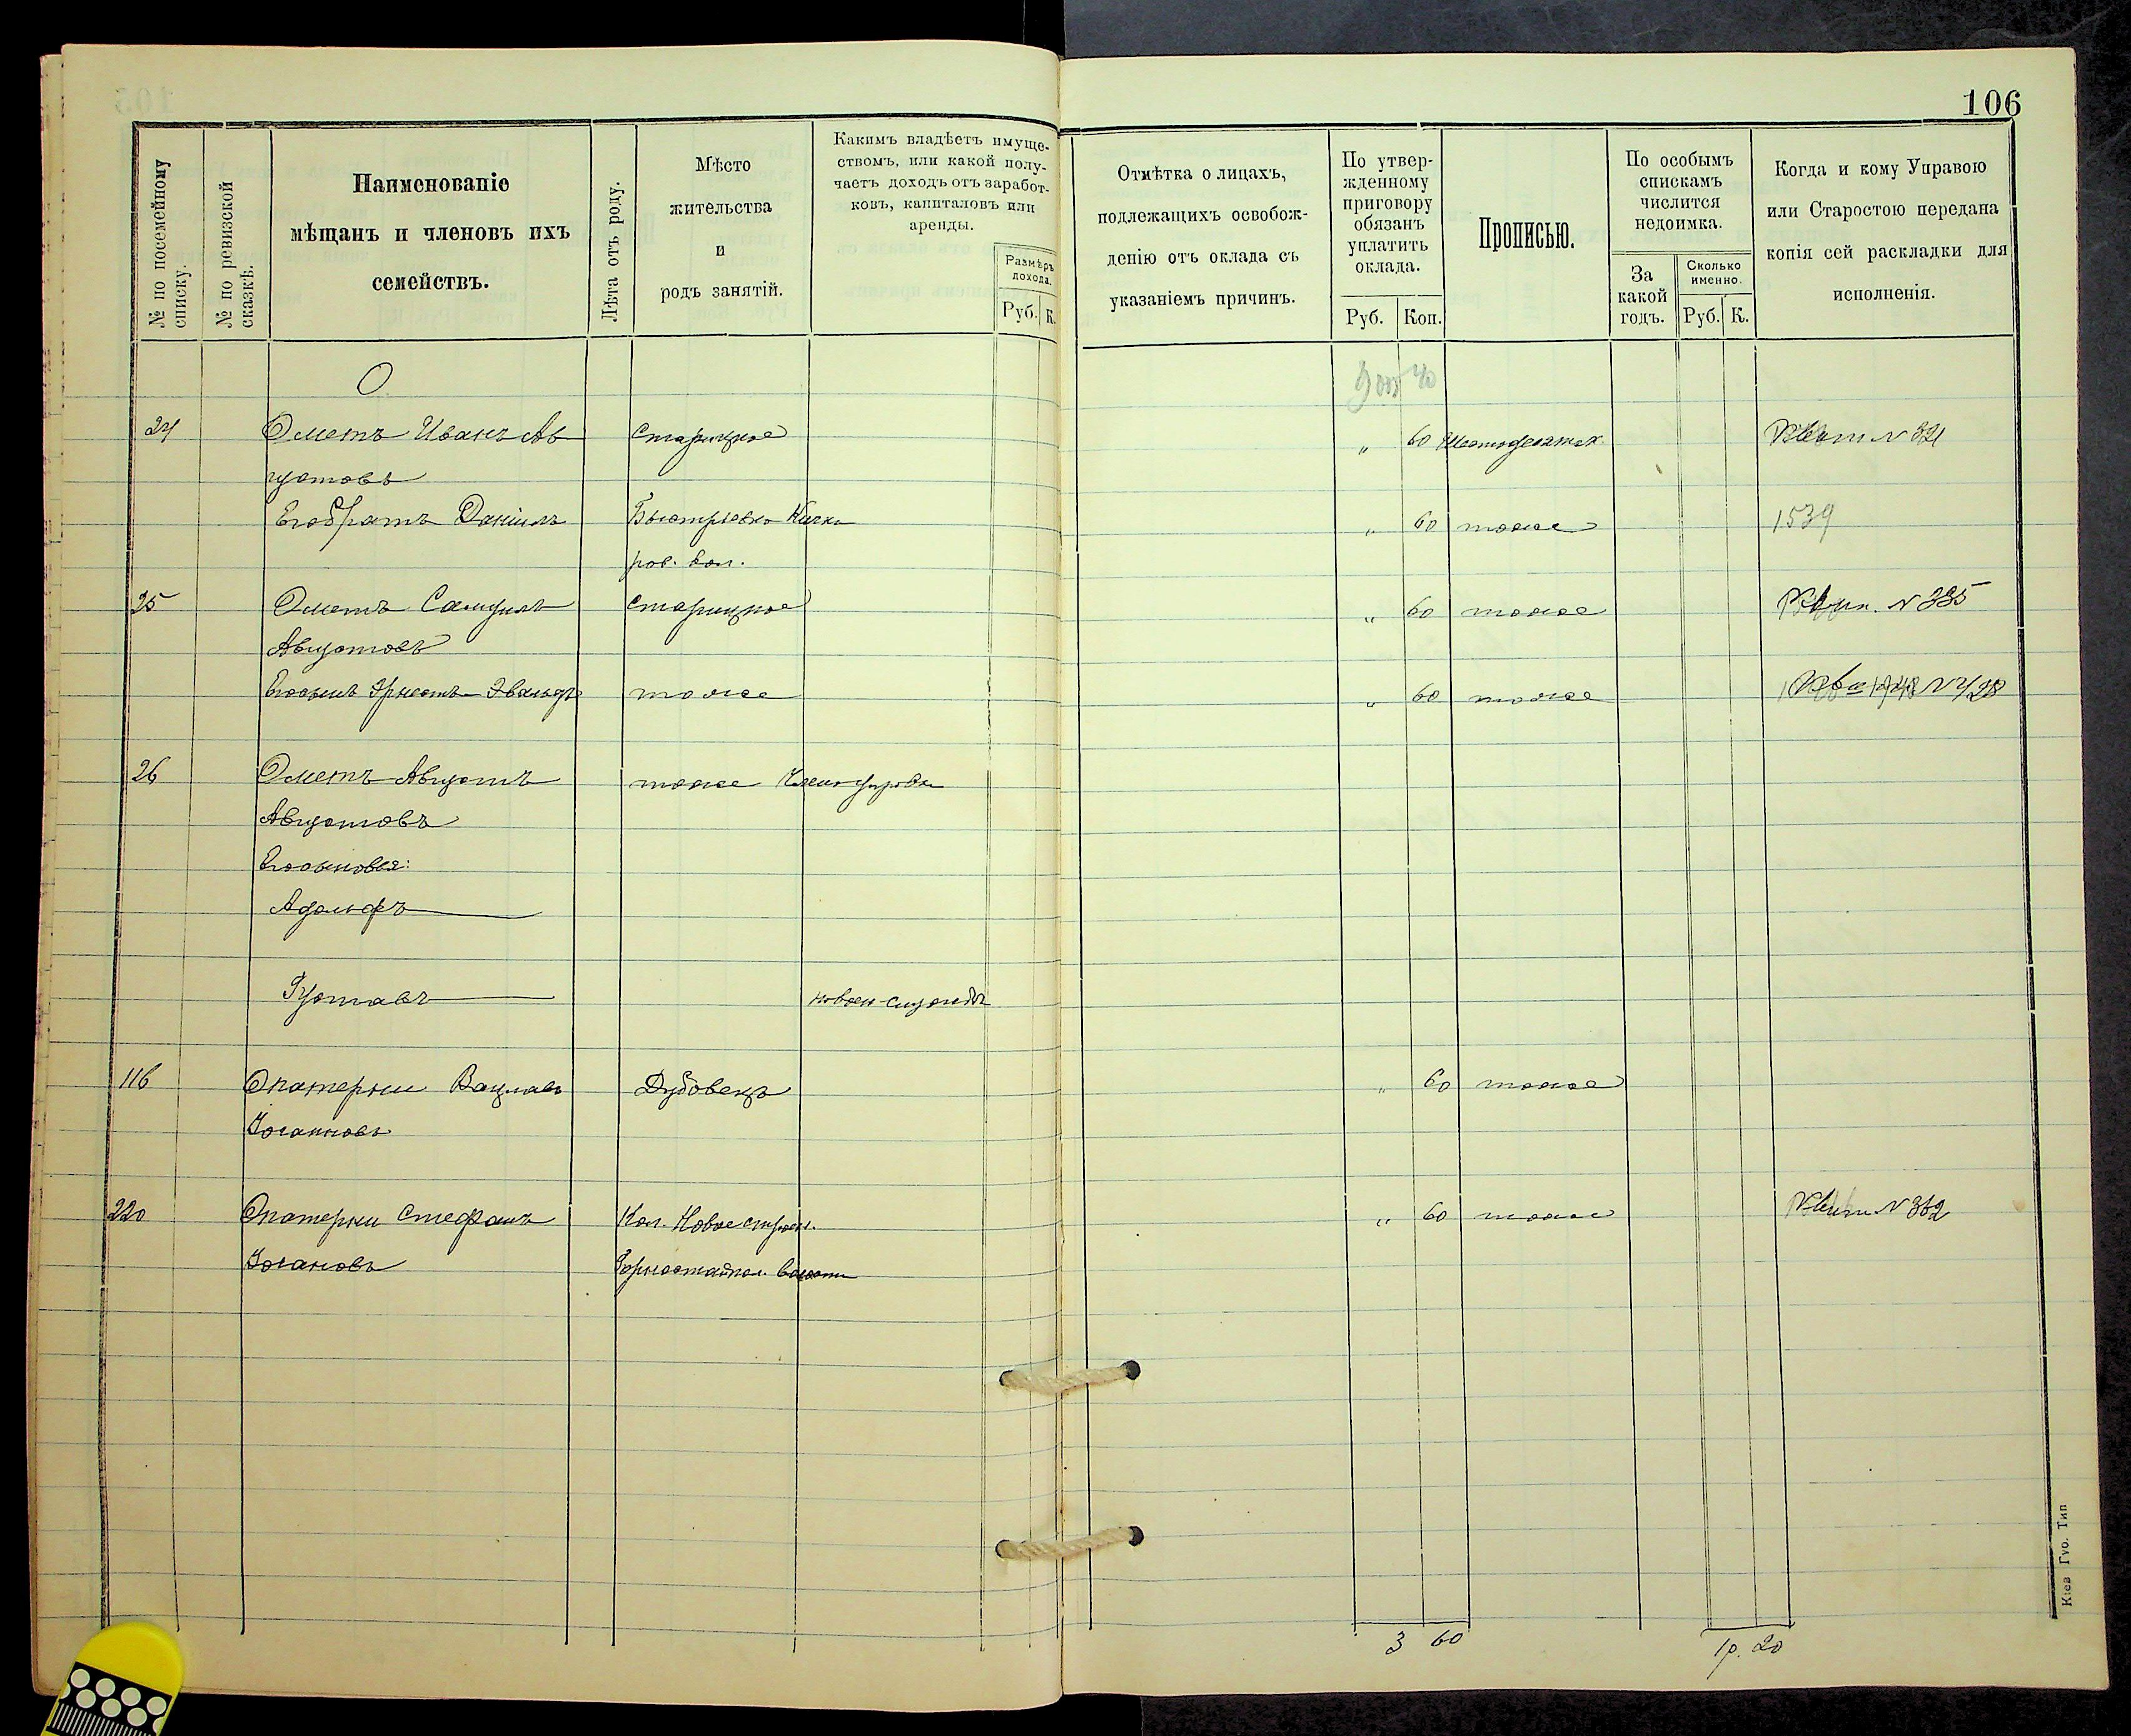 106
№ по посемейному списку.
№ по ревизской сказкѣ.
Наименованіе
мѣщанъ и членовъ ихъ
семействъ.
Лѣта отъ роду.
Мѣсто
жительства
и
родъ занятій.
Какимъ владѣетъ имуще-
ствомъ, или какой полу-
чаетъ доходъ отъ заработ-
ковъ, капиталовъ или
аренды.
Размѣръ
дохода.
Руб. К.
Отмѣтка о лицахъ,
подлежащихъ освобож-
денію отъ оклада съ
указаніемъ причинъ.
По утвер-
жденному
приговору
обязанъ
уплатить
оклада.
Руб. Коп.
Прописью.
По особымъ
спискамъ
числится
недоимка.
За
какой
годъ.
Сколько
именно.
Руб. К.
Когда и кому Управою
или Старостою передана
копія сей раскладки для
исполненія.
О
24 Ометъ Иванъ Ав Старицкое " 60 Шестьдесятъ к Квит N 321
густовъ
Его братъ Даніилъ " 60 тоже 1539
ров. вол.
25 Ометъ Самуилъ Старицкое " 60 тоже Квит. N 335
Августовъ
Его сынъ Эрнестъ-Эвальдъ тоже " 60 тоже
26 Ометъ Августъ тоже
Августовъ
Его сыновья:
Адольфъ
Густавъ
116 Опатерни Вацлавъ Дубовецъ " 60 тоже
Іоганновъ
220 Опатерни Стефанъ Кол. Новое строен. " 60 тоже Квит N 362
Іогановъ Горностайпол. волости
3 60
1р. 20
Кіев Гуо. Тип